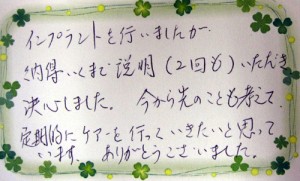 インプラントを行いましたが
納得いくまで説明(2回も)いただき
決心しました。 今から先のことも考えて、
定期的にケアーを行っていきたいと思って
います。 ありがとうございました。